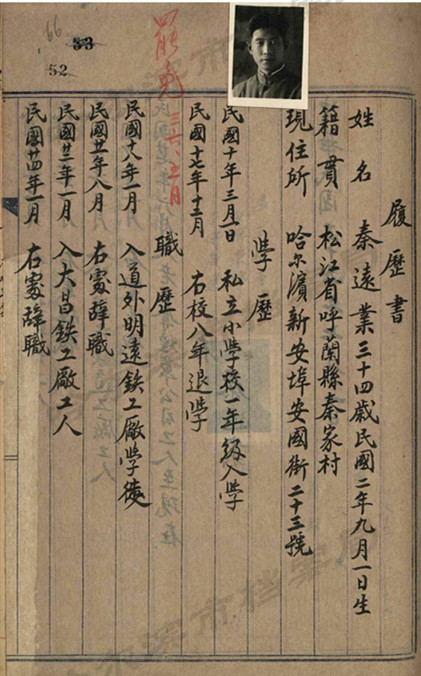 履歷書
姓名 秦遠業 三十四歲 民國二年九月一日生
籍貫 松江省呼蘭縣秦家村
現住所 哈尔濱新安埠安國街二十三號
學歷
民國十年三月一日 私立小學校一年級入學
民國十七年十二月 右校八年退學
職歷
民國十八年一月 入道外明遠鉄工廠學徒
民國廿一年八月 右處辞職
民國廿三年一月 入大昌鉄工廠工人
民國廿四年一月 右處辞職
52
53
66